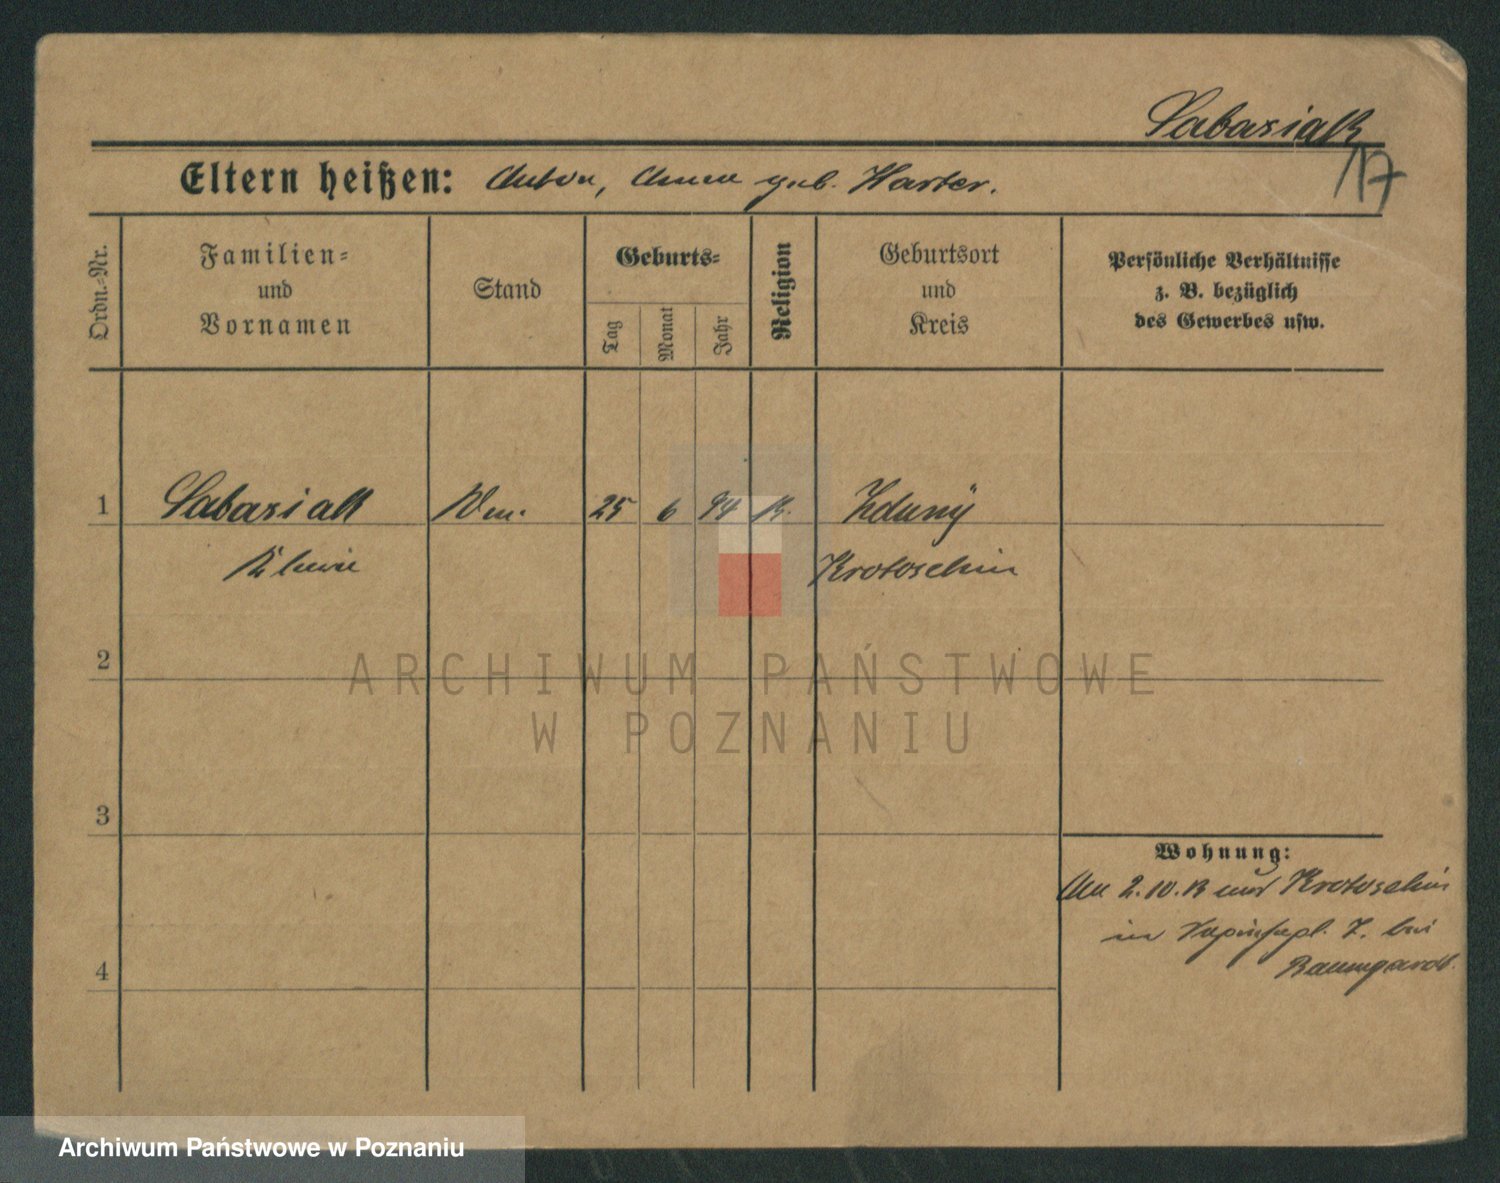 Sabasiak
17
Eltern heißen: Anton, Anna geb. Harter.
Ordn.-Nr.
Familien-
und
Vornamen
Stand
Geburts-
Tag
Monat
Jahr
Religion
Geburtsort
und
Kreis
Persönliche Verhältnisse
z. B. bezüglich
des Gewerbes usw.
1 Sabasiak 25 6 94 K. Zduny
Krotoschin
2
ARCHIWUM PAŃSTWOWE
W POZNANIU
3
Wohnung:
Am 2.10. Krotoschin
in bei
4
Baumgardt.
Archiwum Państwowe w Poznaniu